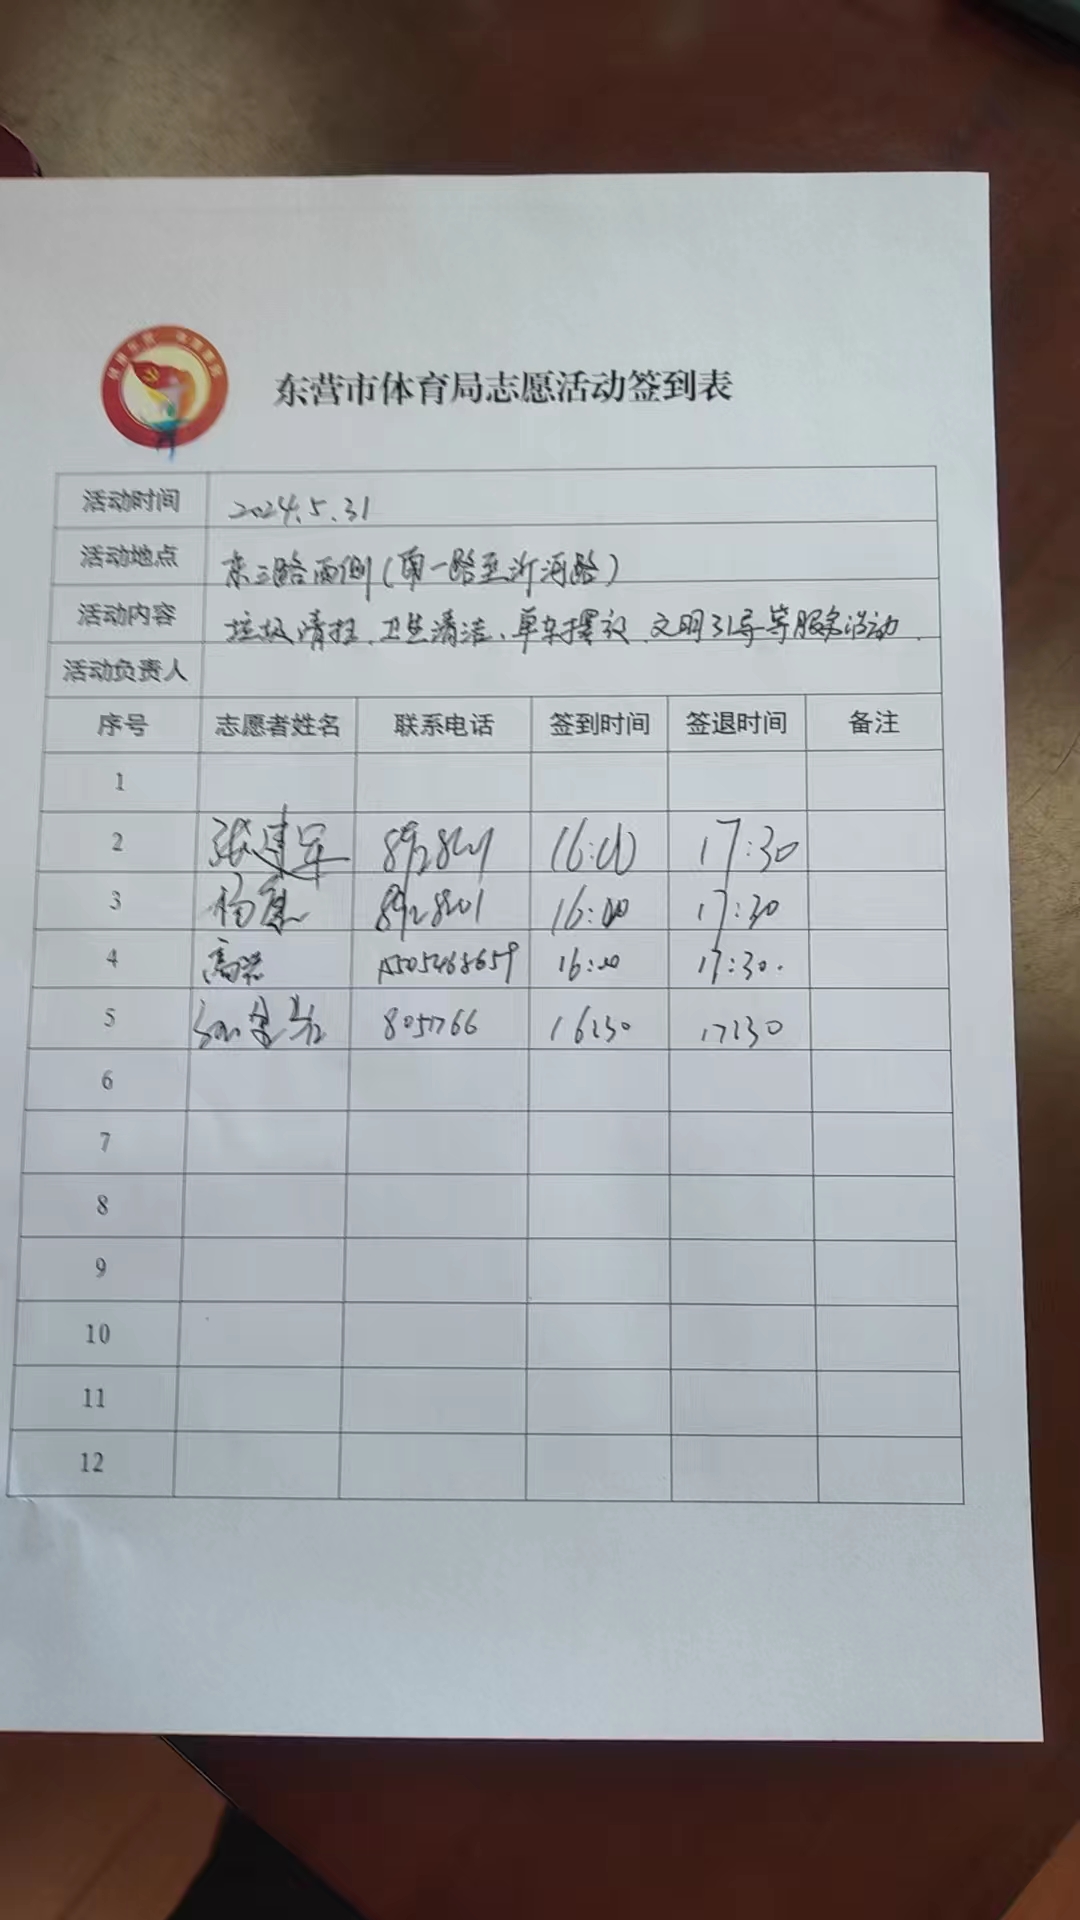 东营市体育局志愿活动签到表
活动时间 2024.5.31
活动地点 东三路西侧(南一路至沂河路)
活动内容 垃圾清扫、卫生清洁、单车摆放、文明引导等服务活动.
活动负责人
序号 志愿者姓名 联系电话 签到时间 签退时间 备注
1
2 张建军 8928201 16:00 17:30
3 杨 8928201 16:00 17:30
4 高 15505468659 16:00 17:30.
5 8051766 16:30 17:30
6
7
8
9
10
11
12